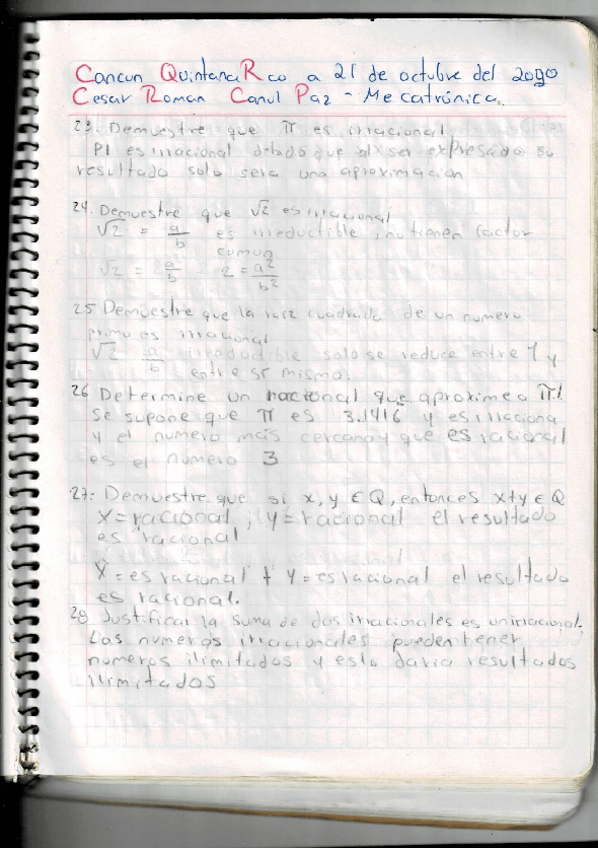 Cancun Quintana Roo a 21 de octubre del 2020
Cesar Roman Canul Paz - Mecatrónica.
23. Demuestre que π es irracional
PI es irracional debido que al ser expresado su
resultado solo sera una aproximación
24. Demuestre que √2 es irracional
√2 = a/b es irreductible, no tienen factor
comun
√2 = a/b 2 = a²/b²
25 Demuestre que la raiz cuadrada de un numero
primo es irracional
√2 a/b irreducible solo se reduce entre 1 y
entre sí mismo.
26 Determine un racional que aproxime a π!
Se supone que π es 3.1416 y es irraciona
y el numero más cercano y que es racional
es el numero 3
27: Demuestre que si x, y ∈ Q, entonces x+y ∈ Q
X = racional, y = racional el resultado
es racional
X = es racional + Y = es racional el resultado
es racional.
28 Justificar la suma de dos irracionales es un irracional.
Los numeros irracionales pueden tener
numeros ilimitados y esto daria resultados
ilimitados